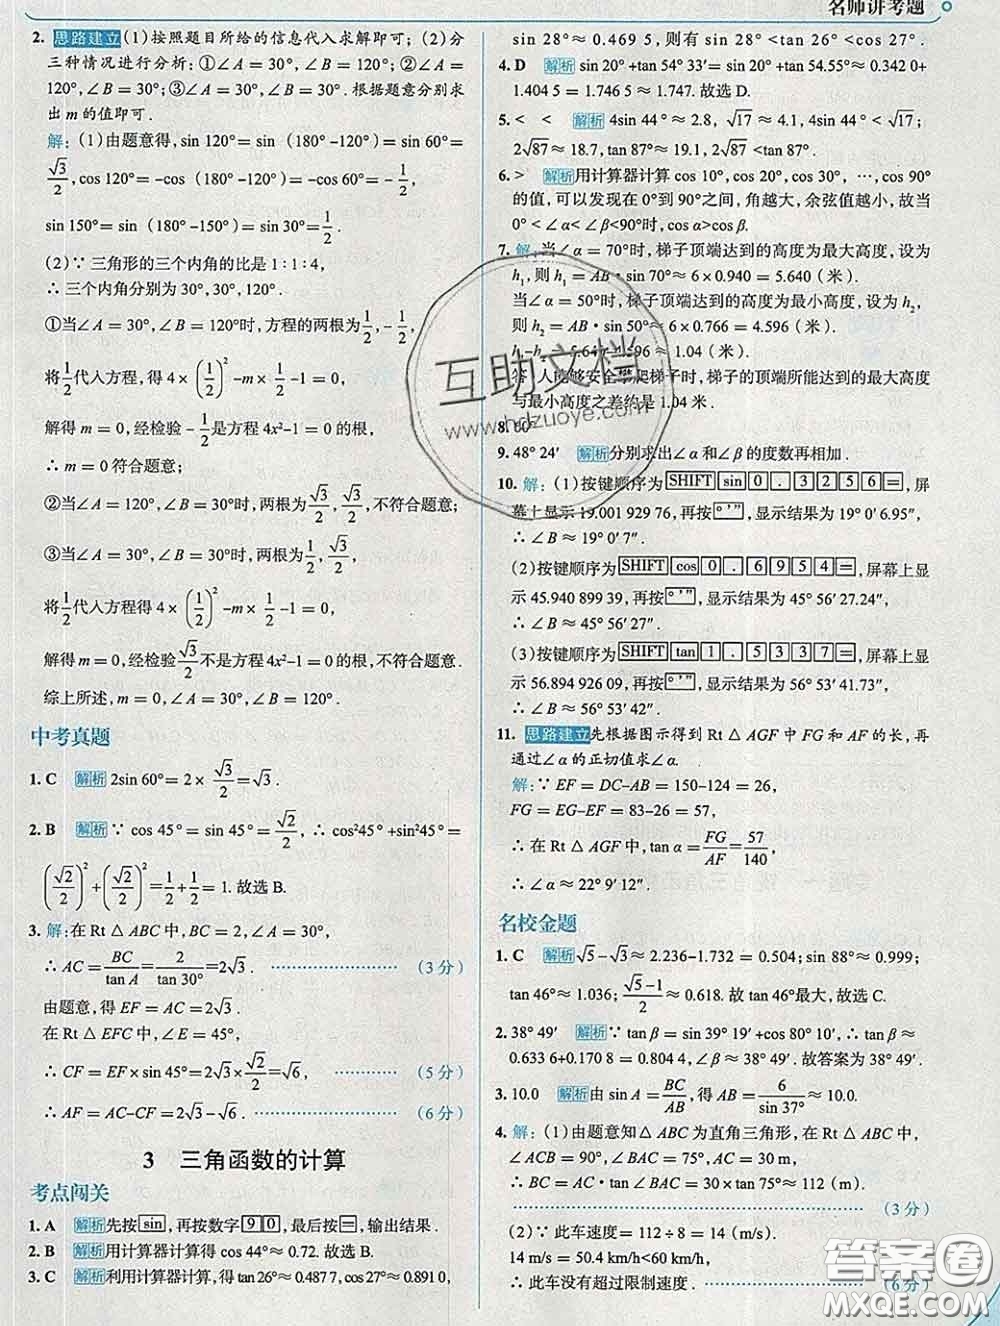 名师讲考题
2. 思路建立(1)按照题目所给的信息代入求解即可;(2)分
三种情况进行分析:①∠A = 30°,∠B = 120°;②∠A =
120°,∠B = 30°;③∠A = 30°,∠B = 30°.根据题意分别求
出 m 的值即可.
解:(1)由题意得,sin 120°= sin (180°-120°)= sin 60°=
√3/2,cos 120°=-cos (180°-120°)=-cos 60°=-1/2,
sin 150°= sin (180°-150°)= sin 30°=1/2.
(2)∵ 三角形的三个内角的比是 1∶1∶4,
∴ 三个内角分别为 30°,30°,120°.
①当∠A = 30°,∠B = 120°时,方程的两根为1/2,-1/2,
将1/2代入方程,得 4×(1/2)²-m×1/2-1=0,
解得 m=0,经检验 -1/2是方程 4x²-1=0的根,
∴ m=0符合题意;
②当∠A = 120°,∠B = 30°时,两根为√3/2,√3/2,不符合题意;
③当∠A = 30°,∠B = 30°时,两根为1/2,√3/2,
将1/2代入方程得 4×(1/2)²-m×1/2-1=0,
解得 m=0,经检验√3/2不是方程 4x²-1=0的根,不符合题意.
综上所述,m=0,∠A = 30°,∠B = 120°.
中考真题
1. C 解析 2sin 60°= 2 × √3/2=√3.
2. B 解析 ∵ cos 45°= sin 45°=√2/2,∴ cos²45°+sin²45°=
(√2/2)²+(√2/2)²=1/2+1/2=1.故选 B.
3. 解:在 Rt △ ABC 中,BC = 2,∠A = 30°,
∴ AC=BC/tan A=2/tan 30°=2√3. (3 分)
由题意,得 EF = AC=2√3.
在 Rt △ EFC 中,∠E = 45°,
∴ CF = EF×sin 45°=2√3×√2/2=√6, (5 分)
∴ AF= AC-CF=2√3-√6. (6 分)
3 三角函数的计算
考点闯关
1. A 解析 先按sin,再按数字9 0,最后按=,输出结果.
2. B 解析 用计算器计算得 cos 44°≈ 0.72.故选 B.
3. C 解析 利用计算器计算,得 tan 26°≈ 0.487 7,cos 27°≈ 0.891 0,
sin 28°≈ 0.469 5,则有 sin 28° <tan 26° <cos 27°.
4. D 解析 sin 20°+tan 54° 33′= sin 20°+tan 54.55°≈ 0.342 0+
1.404 5 = 1.746 5 ≈ 1.747.故选 D.
5. < < 解析 4sin 44 °≈ 2.8,√17 ≈ 4.1,4sin 44° <√17;
2√87 ≈ 18.7,tan 87°≈ 19.1,2√87 <tan 87°.
6. > 解析 用计算器计算 cos 10°,cos 20°,cos 30°,…,cos 90°
的值,可以发现在 0°到 90°之间,角越大,余弦值越小,故当
0° <∠α <∠β<90°时,cos α>cos β.
7. 解:当∠α = 70°时,梯子顶端达到的高度为最大高度,设为
h₁,则 h₁= AB·sin 70°≈ 6×0.940 = 5.640(米).
当∠α = 50°时,梯子顶端达到的高度为最小高度,设为 h₂,
则 h₂= AB·sin 50°≈ 6×0.766 = 4.596(米).
h₁-h₂ = 5.64-4.596≈ 1.04(米).
答:人能够安全攀爬梯子时,梯子的顶端所能达到的最大高度
与最小高度之差约是 1.04 米.
8. 60°
9. 48° 24′ 解析 分别求出∠α 和∠β 的度数再相加.
10. 解:(1)按键顺序为 SHIFT sin 0 . 3 2 5 6 =,屏
幕上显示 19.001 929 76,再按 ° ′ ″,显示结果为 19° 0′ 6.95″,
∴ ∠B ≈ 19° 0′ 7″.
(2)按键顺序为 SHIFT cos 0 . 6 9 5 4 =,屏幕上显
示 45.940 899 39,再按 ° ′ ″,显示结果为 45° 56′ 27.24″,
∴ ∠B ≈ 45° 56′ 27″.
(3)按键顺序为 SHIFT tan 1 . 5 3 3 7 =,屏幕上显示
56.894 926 09,再按 ° ′ ″,显示结果为 56° 53′ 41.73″,
∴ ∠B≈ 56° 53′ 42″.
11. 思路建立 先根据图示得到 Rt △ AGF 中 FG 和 AF 的长,再
通过∠α 的正切值求∠α.
解:∵ EF = DC-AB = 150-124 = 26,
FG = EG-EF= 83-26 = 57,
∴ 在 Rt △ AGF 中,tan α =FG/AF=57/140,
∴ ∠α ≈ 22° 9′ 12″.
名校金题
1. C 解析 √5-√3≈ 2.236-1.732 = 0.504;sin 88°≈ 0.999,
tan 46°≈ 1.036;(√5-1)/2≈ 0.618.故 tan 46°最大,故选 C.
2. 38° 49′ 解析 ∵ tan β = sin 39° 19′+cos 80° 10′,∴ tan β ≈
0.633 6+0.170 8 = 0.804 4,∠β ≈ 38° 49′.故答案为 38° 49′.
3. 10.0 解析 由 sin A=BC/AB,得 AB =6/sin 37°≈ 10.0.
4. 解:(1)由题意知△ ABC 为直角三角形,在 Rt △ ABC 中,
∠ABC = 90°,∠BAC = 75°,AC = 30 m,
∴ BC = AC·tan∠BAC = 30×tan 75°≈ 112(m).
(3 分)
(2)∵ 此车速度= 112÷8 = 14(m/s).
14 m/s = 50.4 km/h<60 km/h,
∴ 此车没有超过限制速度. (6 分)
互助文档
www.hdzuoye.com
答案圈
MXQE.COM